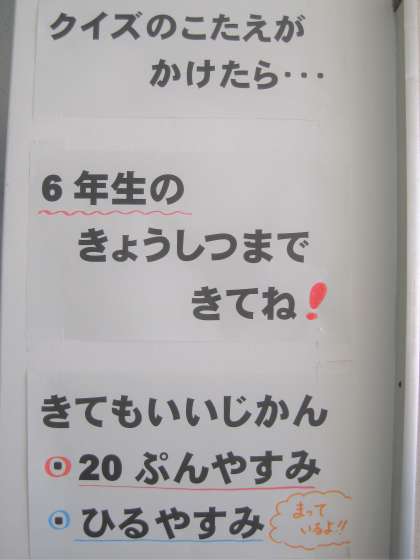 クイズのこたえが
かけたら・・・
6年生の
きょうしつまで
きてね!
きてもいいじかん
20ぷんやすみ
ひるやすみ
まって
いるよ!!